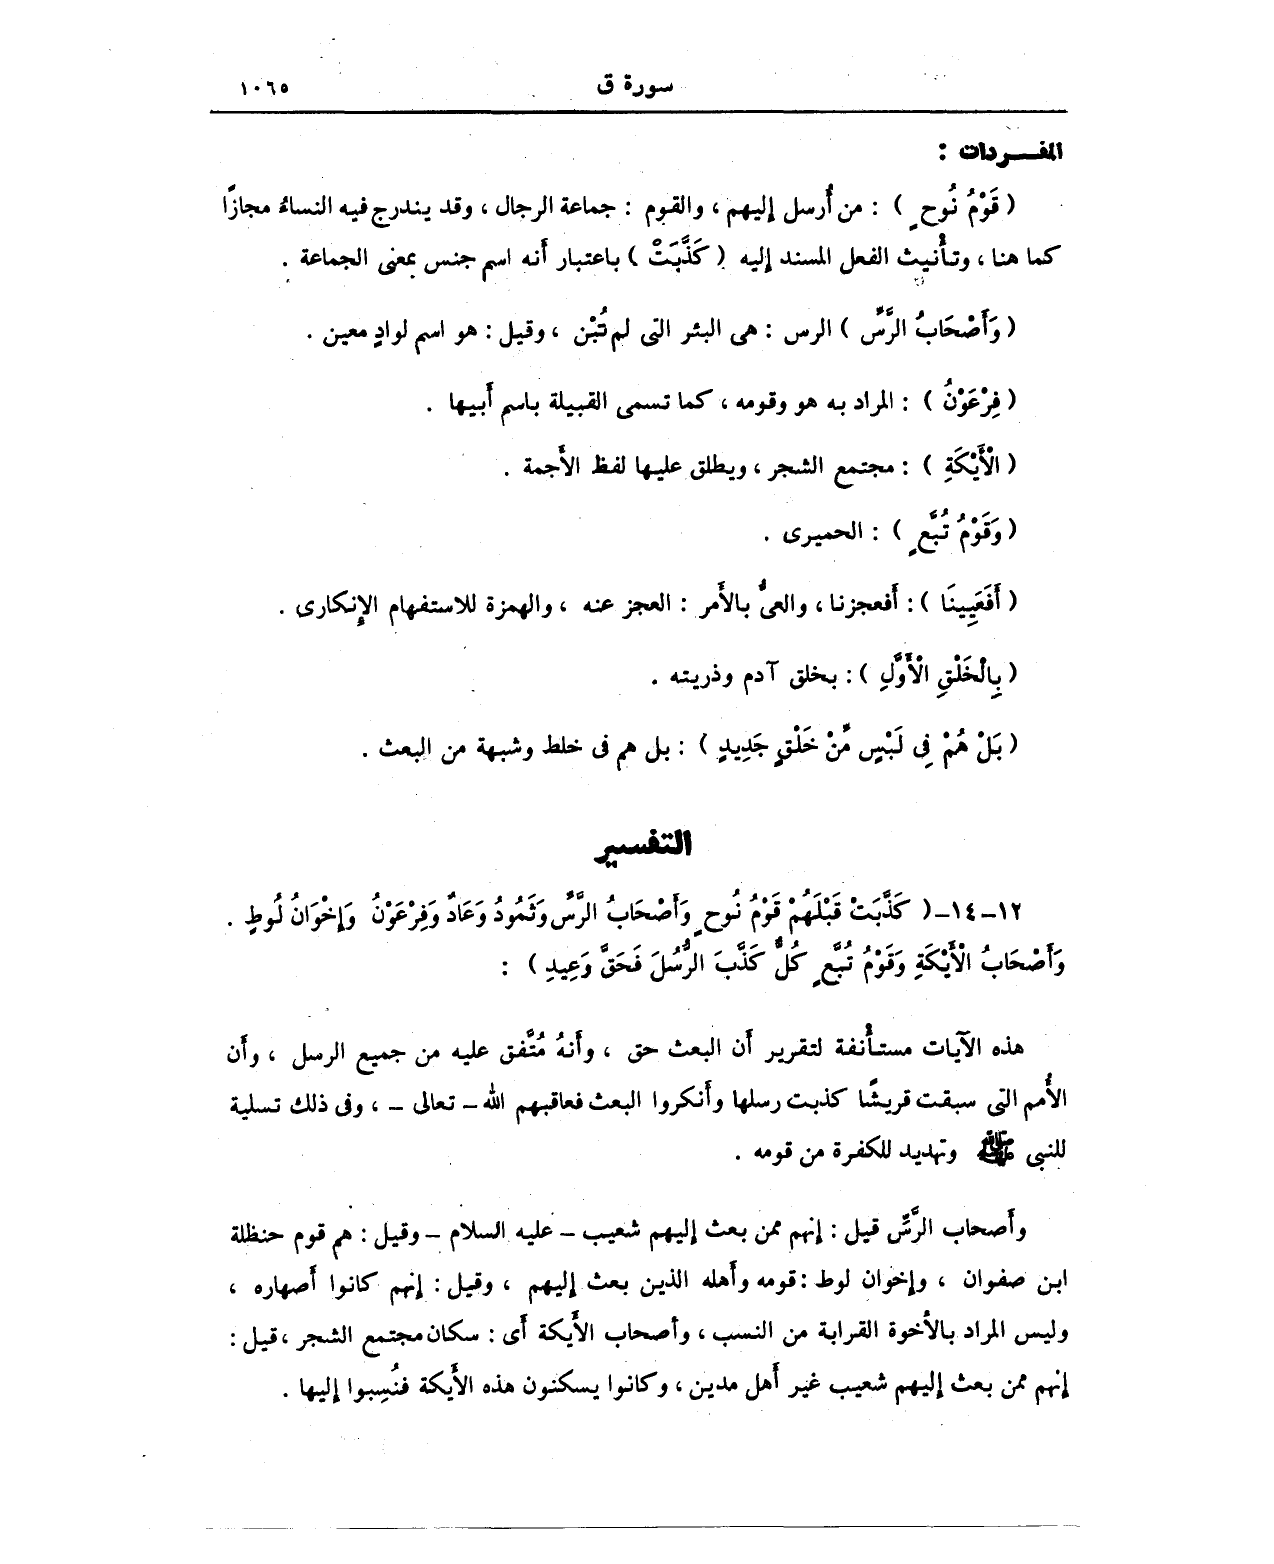 سورة ق
١٠٦٥
المفـــردات :
( قَوْمُ نُوحٍ ) : من أُرسل إليهم ، والقوم : جماعة الرجال ، وقد يندرج فيه النساءُ مجازًا
كما هنا ، وتأْنيث الفعل المسند إليه ( كَذَّبَتْ ) باعتبار أنه اسم جنس بمعنى الجماعة .
( وَأَصْحَابُ الرَّسِّ ) الرس : هى البئر التى لم تُبْن ، وقيل : هو اسم لوادٍ معين .
( فِرْعَوْنُ ) : المراد به هو وقومه ، كما تسمى القبيلة باسم أَبيها .
( الْأَيْكَةِ ) : مجتمع الشجر ، ويطلق عليها لفظ الأَجمة .
( وَقَوْمُ تُبَّعٍ ) : الحميرى .
( أَفَعَيِينَا ) : أَفعجزنا ، والعىُّ بالأَمر : العجز عنه ، والهمزة للاستفهام الإِنكارى .
( بِالْخَلْقِ الْأَوَّلِ ) : بخلق آدم وذريته .
( بَلْ هُمْ فِى لَبْسٍ مِّنْ خَلْقٍ جَدِيدٍ ) : بل هم فى خلط وشبهة من البعث .
التفسير
١٢-١٤-( كَذَّبَتْ قَبْلَهُمْ قَوْمُ نُوحٍ وَأَصْحَابُ الرَّسِّ وَثَمُودُ وَعَادٌ وَفِرْعَوْنُ وَإِخْوَانُ لُوطٍ .
وَأَصْحَابُ الْأَيْكَةِ وَقَوْمُ تُبَّعٍ كُلٌّ كَذَّبَ الرُّسُلَ فَحَقَّ وَعِيدِ ) :
هذه الآيات مستأْنفة لتقرير أَن البعث حق ، وأَنهُ مُتَّفق عليه من جميع الرسل ، وأَن
الأُمم التى سبقت قريشًا كذبت رسلها وأَنكروا البعث فعاقبهم الله - تعالى - ، وفى ذلك تسلية
للنبى ﷺ وتهديد للكفرة من قومه .
وأَصحاب الرَّسِّ قيل : إنهم ممن بعث إليهم شعيب - عليه السلام - وقيل : هم قوم حنظلة
ابن صفوان ، وإخوان لوط : قومه وأَهله الذين بعث إليهم ، وقيل : إنهم كانوا أَصهاره ،
وليس المراد بالأُخوة القرابة من النسب ، وأصحاب الأَيكة أَى : سكان مجتمع الشجر ، قيل :
إنهم ممن بعث إليهم شعيب غير أَهل مدين ، وكانوا يسكنون هذه الأَيكة فنُسِبوا إليها .